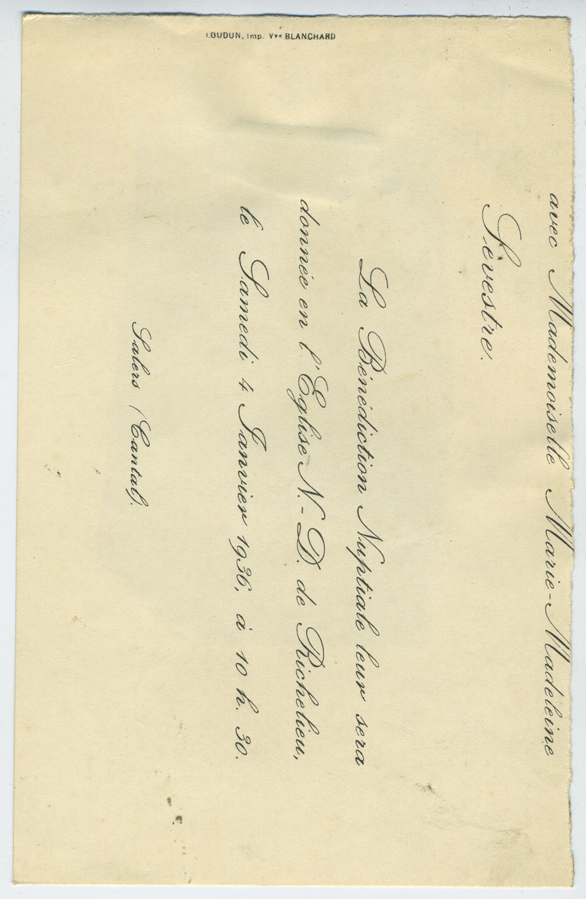 avec Mademoiselle Marie-Madeleine
Sevestre.
La Bénédiction Nuptiale leur sera
donnée en l'Eglise N.-D. de Richelieu,
le Samedi 4 Janvier 1936, à 10 h. 30.
Salers (Cantal).
LOUDUN, Imp. Vve BLANCHARD